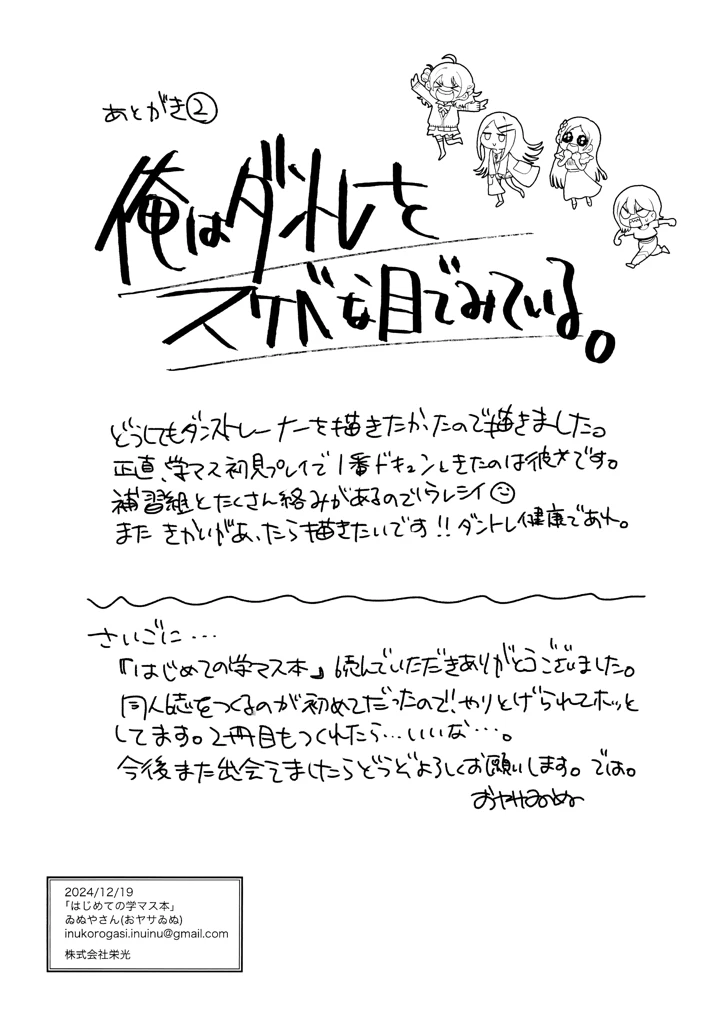 あとがき②
俺はダントレを
スケベな目でみている。
どうしてもダンストレーナーを描きたかったので描きました。
正直、学マス初見プレイで1番ドキュンしきたのは彼女です。
補習組とたくさん絡みがあるのでウレシイ☺
また きかいがあったら描きたいです!! ダントレ健康であれ。
さいごに・・・
『はじめての学マス本』読んでいただきありがとうございました。
同人誌をつくるのが初めてだったので、やりとげられてホッと
してます。2冊目もつくれたら…いいな…。
今後また出会えましたらどうぞよろしくお願いします。では。
おヤサゐぬ
2024/12/19
「はじめての学マス本」
ゐぬやさん(おヤサゐぬ)
inukorogasi.inuinu@gmail.com
株式会社栄光